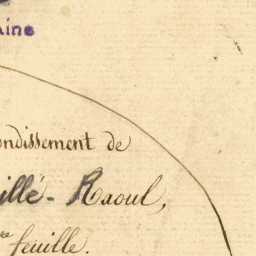 aine
ondissement de
illé-Raoul,
re feuille.